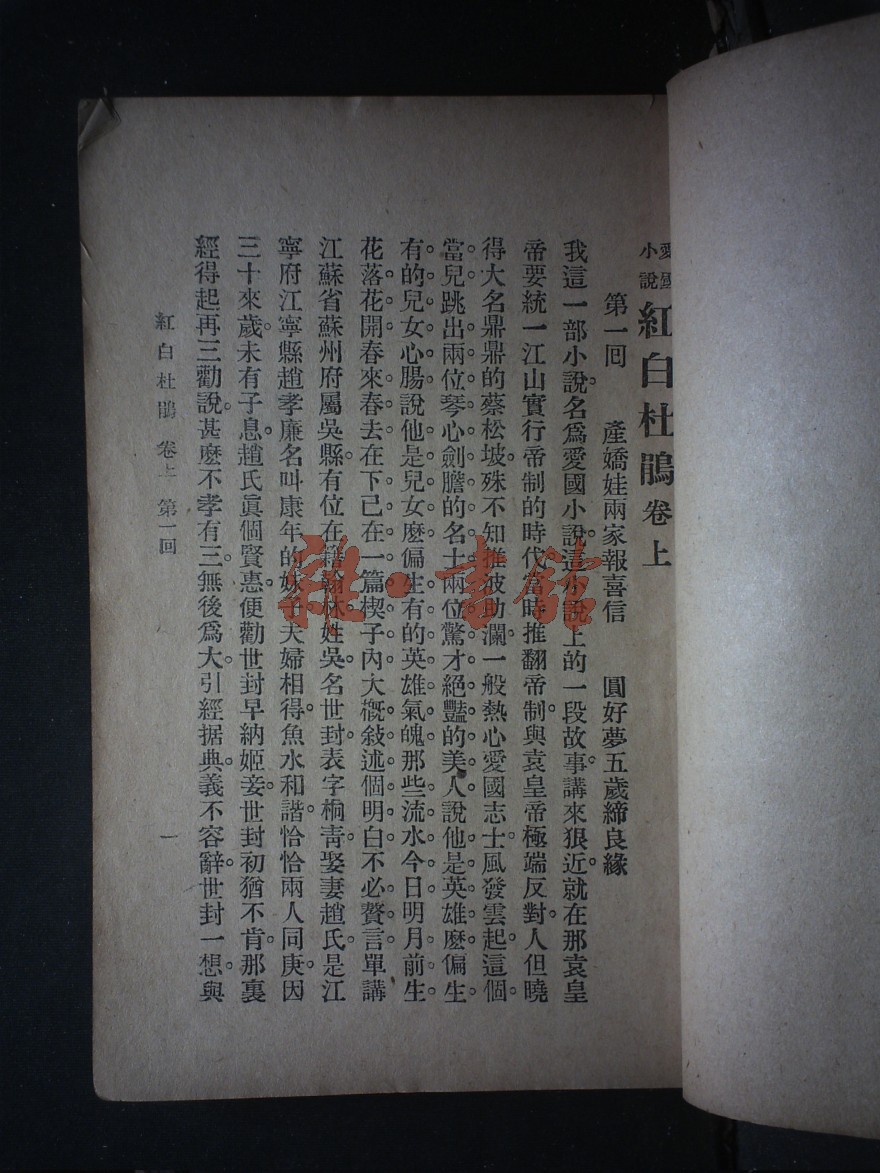 愛國小說 紅白杜鵑 卷上
第一回 產嬌娃兩家報喜信 圓好夢五歲締良緣
我這一部小說。名爲愛國小說。這小說上的一段故事。講來狠近。就在那袁皇
帝要統一江山實行帝制的時代。當時推翻帝制。與袁皇帝極端反對。人但曉
得大名鼎鼎的蔡松坡。殊不知推波助瀾。一般熱心愛國志士。風發雲起。這個
當兒。跳出兩位琴心劍膽的名士。兩位驚才絕豔的美人。說他是英雄麽。偏生
有的兒女心腸。說他是兒女麽。偏生有的英雄氣魄。那些流水今日。明月前生。
花落花開。春來春去。在下已在一篇楔子內。大概敍述個明白。不必贅言。單講
江蘇省蘇州府屬吳縣。有位在籍翰林。姓吳。名世封。表字桐青。娶妻趙氏。是江
寧府江寧縣趙孝廉名叫康年的妹子。夫婦相得。魚水和諧。恰恰兩人同庚。因
三十來歲。未有子息。趙氏眞個賢惠。便勸世封早納姬妾。世封初猶不肯。那裏
經得起再三勸說。甚麽不孝有三。無後爲大。引經据典。義不容辭。世封一想。與
紅白杜鵑 卷上 第一回
一
雜·書館